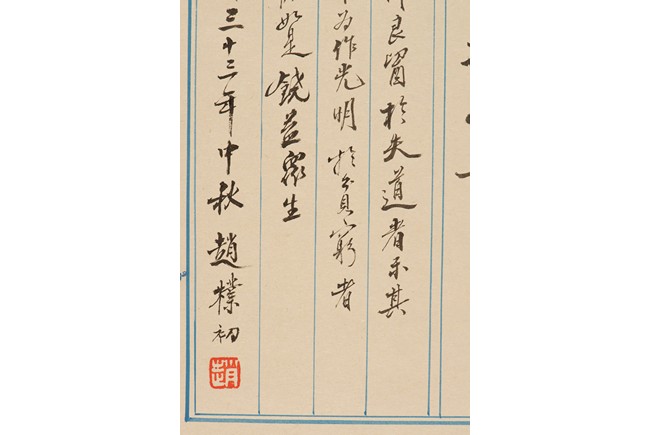 良醫於失道者示其
為作光明於貧窮者
如是饒益眾生
三十三年中秋 趙樸初
趙